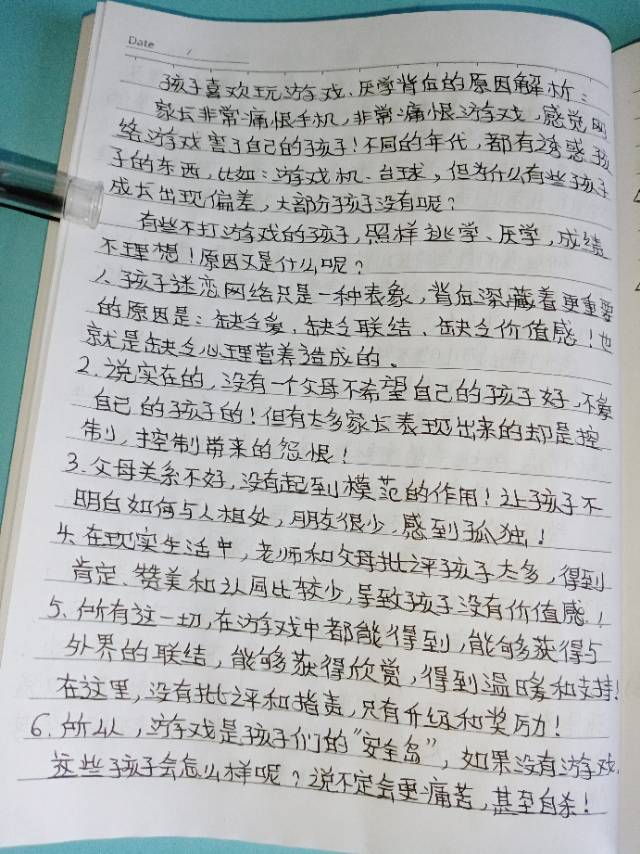 Date /
孩子喜欢玩游戏、厌学背后的原因解析:
家长非常痛恨手机,非常痛恨游戏,感觉网
络游戏害了自己的孩子!不同的年代,都有诱惑孩
子的东西,比如:游戏机、台球,但为什么有些孩子
成长出现偏差,大部分孩子没有呢?
有些不打游戏的孩子,照样逃学、厌学,成绩
不理想!原因又是什么呢?
1、孩子迷恋网络只是一种表象,背后深藏着更重要
的原因是:缺乏爱、缺乏联结、缺乏价值感!也
就是缺乏心理营养造成的。
2、说实在的,没有一个父母不希望自己的孩子好,不爱
自己的孩子的!但有太多家长表现出来的却是控
制,控制带来的怨恨!
3、父母关系不好,没有起到模范的作用!让孩子不
明白如何与人相处,朋友很少,感到孤独!
4、在现实生活中,老师和父母批评孩子太多,得到
肯定、赞美和认同比较少,导致孩子没有价值感!
5、所有这一切,在游戏中都能得到,能够获得与
外界的联结,能够获得欣赏,得到温暖和支持!
在这里,没有批评和指责,只有升级和奖励!
6、所以,游戏是孩子们的“安全岛”,如果没有游戏,
这些孩子会怎么样呢?说不定会更痛苦,甚至自杀!